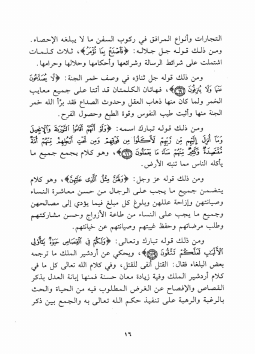 التجارات وأنواع المرافق في ركوب السفن ما لا يبلغه الإحصاء.
ومن ذلك قوله جل جلاله: ﴿فَاصْدَعْ بِمَا تُؤْمَرُ﴾، ثلاث كلمات
اشتملت على شرائط الرسالة وشرائعها وأحكامها وحلالها وحرامها.
ومن ذلك قوله جل ثناؤه في وصف خمر الجنة: ﴿لَا يُصَدَّعُونَ
عَنْهَا وَلَا يُنْزِفُونَ﴾، فهاتان الكلمتان قد أتتا على جميع معايب
الخمر ولما كان منها ذهاب العقل وحدوث الصداع فقد برّأ الله خمر
الجنة منها وأثبت طيب النفوس وقوة الطبع وحصول الفرح.
ومن ذلك قوله تبارك اسمه: ﴿وَلَوْ أَنَّهُمْ أَقَامُوا التَّوْرَاةَ وَالْإِنْجِيلَ
وَمَا أُنْزِلَ إِلَيْهِمْ مِنْ رَبِّهِمْ لَأَكَلُوا مِنْ فَوْقِهِمْ وَمِنْ تَحْتِ أَرْجُلِهِمْ مِنْهُمْ أُمَّةٌ
مُقْتَصِدَةٌ وَكَثِيرٌ مِنْهُمْ سَاءَ مَا يَعْمَلُونَ﴾، وهو كلام يجمع جميع ما
يأكله الناس مما تنبته الأرض.
ومن ذلك قوله عز وجل: ﴿وَلَهُنَّ مِثْلُ الَّذِي عَلَيْهِنَّ﴾، وهو كلام
يتضمن جميع ما يجب على الرجال من حسن معاشرة النساء
وصيانتهن وإزاحة عللهن وبلوغ كل مبلغ فيما يؤدي إلى مصالحهن
وجميع ما يجب على النساء من طاعة الأزواج وحسن مشاركتهم
وطلب مرضاتهم وحفظ غيبتهم وصيانتهم عن خيانتهم.
ومن ذلك قوله تبارك وتعالى: ﴿وَلَكُمْ فِي الْقِصَاصِ حَيَاةٌ يَا أُولِي
الْأَلْبَابِ لَعَلَّكُمْ تَتَّقُونَ﴾، ويحكي عن أردشير الملك ما ترجمه
بعض البلغاء فقال: القتل أنفى للقتل، وفي كلام الله تعالى كل ما في
كلام أردشير الملك وفيه زيادة معان حسنة فمنها إبانة العدل بذكر
القصاص والإفصاح عن الغرض المطلوب فيه من الحياة والحث
بالرغبة والرهبة على تنفيذ حكم الله تعالى به والجمع بين ذكر
١٦